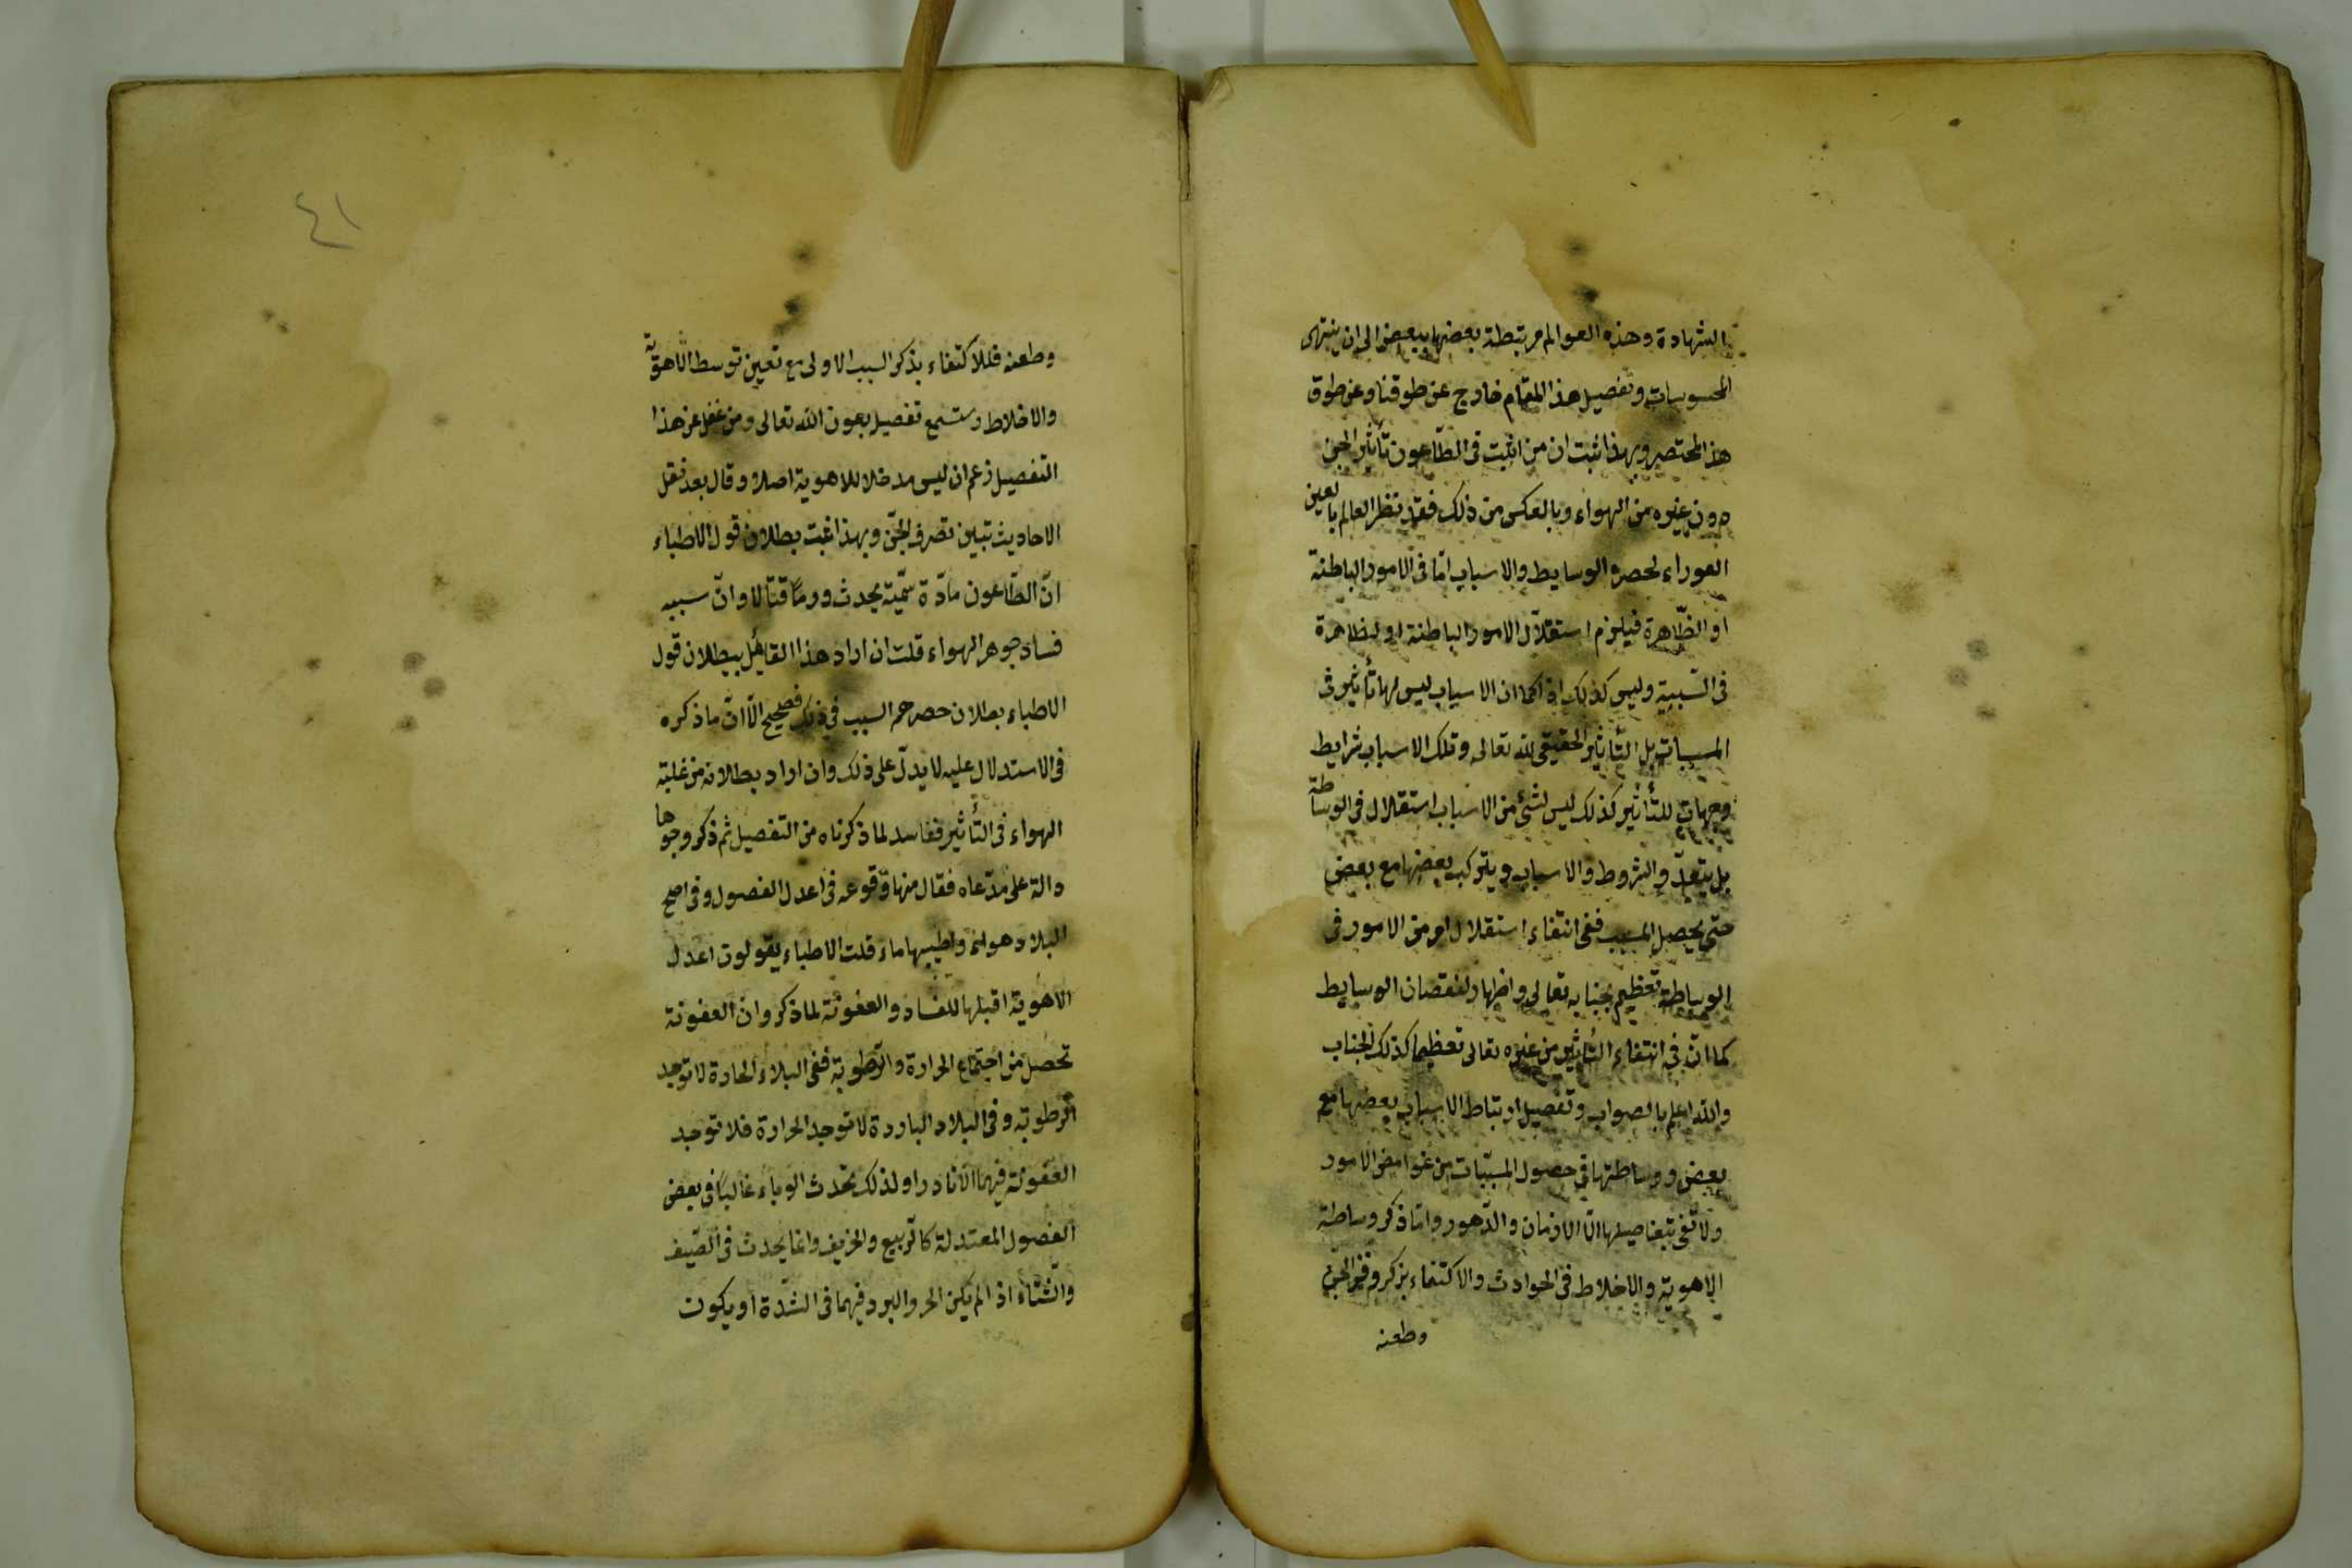 الشهادة وهذه العوالم مرتبطة بعضها ببعض الى ان ينتهى
المحسوسات وتفصيل هذا المقام خارج عن طوقنا وعن طوق
هذا المختصر وبهذا ثبت ان من اثبت فى الطّاعون تأثير الجن
دون غيره من الهواء وبالعكس من ذلك فقد نظر العالم بالعين
العوراء لحصره الوسايط والاسباب امّا فى الامور الباطنة
او الظّاهرة فيلزم استقلال الامور الباطنة او الظاهرة
فى السّببية وليس كذلك اذ كما ان الاسباب ليس لها تأثير فى
المسببات بل التّأثير الحقيقى لله تعالى وتلك الاسباب شرايط
وجهات للتأثير كذلك ليس لشئ من الاسباب استقلال فى الوساطة
بل يتعدّد الشروط والاسباب ويتركب بعضها مع بعض
حتى يحصل المسبب ففى انتفاء استقلال امر من الامور فى
الوساطة تعظيم لجنابه تعالى واظهار لنقصان الوسايط
كما انّ فى انتفاء التأثير من غيره تعالى تعظيما كذلك لجناب
والله اعلم بالصواب وتفصيل ارتباط الاسباب بعضها مع
بعض ووساطتها فى حصول المسبّبات من غوامض الامور
ولا تفى بتفاصيلها الّا الازمان والدّهور وامّا ذكر وساطة
الاهوية والاخلاط فى الحوادث والاكتفاء بذكر وخز الجن
وطعنه
٤١
وطعنه فللاكتفاء بذكر السبب الاولى مع تعين توسط الاهوية
والاخلاط وستسمع تفصيل بعون الله تعالى ومن غفل عن هذا
التفصيل زعم ان ليس مدخلا للاهوية اصلا وقال بعد نقل
الاحاديث تبين تصرف الجنّ وبهذا ثبت بطلان قول الاطباء
انّ الطّاعون مادّة سمّيّة يحدث ورمًا قتّالا وانّ سببه
فساد جوهر الهواء قلت ان اراد هذا القائل ببطلان قول
الاطباء بطلان حصرهم السبب فى ذلك فصحيح الّا انّ ما ذكره
فى الاستدلال عليه لا يدلّ على ذلك وان اراد بطلانه من غلبة
الهواء فى التأثير ففاسد لما ذكرناه من التفصيل ثم ذكر وجوها
دالة على مدّعاه فقال منها وقوعه فى اعدل الفصول وفى اصح
البلاد هواء واطيبها ماء قلت الاطباء يقولون اعدل
الاهوية اقبلها للفساد والعفونة لما ذكر وان العفونة
تحصل من اجتماع الحرارة والرّطوبة ففى البلاد الحارة لا توجد
الرطوبة وفى البلاد الباردة لا توجد الحرارة فلا توجد
العفونة فيهما الّا نادرا ولذلك تحدث الوباء غالبًا فى بعض
الفصول المعتدلة كالرّبيع والخريف وانما يحدث فى الصّيف
والشتاء اذا لم يكن الحر والبرد فيهما فى الشدّة او يكون